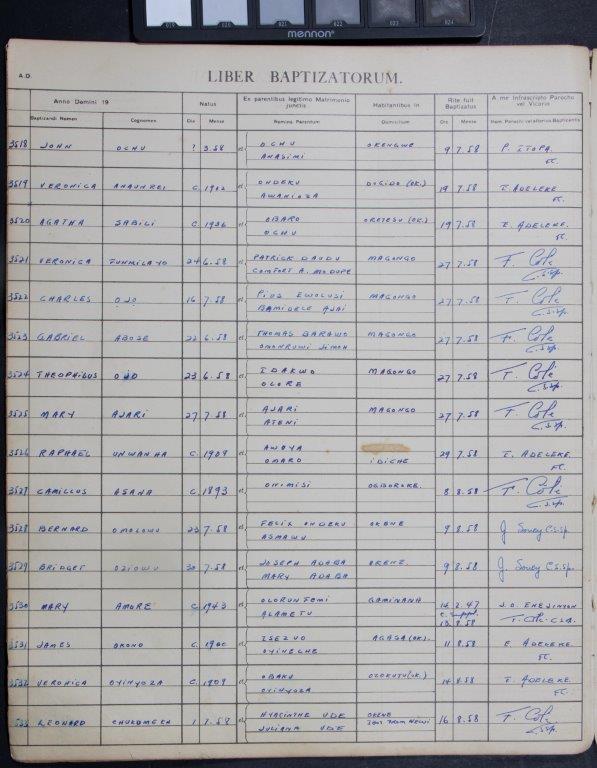 019 020 021 022 023 024
mennon
A.D.
LIBER BAPTIZATORUM.
Anno Domini 19 Natus Ex parentibus legitimo Matrimonio junctis Habitantibus in Rite fuit Baptizatus A me Infrascripto Parocho vel Vicario
Baptizandi Nomen Cognomen Die Mense Nomina Parentum Domicilium Die Mense Nom. Parochi vel alterius Baptizantis
3518 JOHN OCHU ? 3.58 et OCHU OKENGWE 9 7.58 P. ITOPA
ANASIMI
3519 VERONICA C. 1902 et ONDEKU (OK.) 19 7.58 E. ADELEKE
AWANIOZA
3520 AGATHA SABILI C. 1936 et OBARO (OK.) 19 7.58 E. ADELEKE.
OCHU
3521 VERONICA FUNMILAYO 24 6.58 et PATRICK DAUDU MAGONGO 27 7.58 F. Cole
COMFORT A. MODUPE C.S.Sp.
3522 CHARLES OJO 16 7.58 et PIUS EWOLUSI MAGONGO 27 7.58 F. Cole
BAMIDELE AJAI C.S.Sp.
3523 GABRIEL ABOSE 22 6.58 et THOMAS BARAWO MAGONGO 27 7.58 F. Cole
OMONRUWI SIMOH C.S.Sp.
3524 THEOPHILUS OJO 23 6.58 et IDAKWO MAGONGO 27 7.58 F. Cole
OLORE C.S.Sp.
3525 MARY AJARI 27 7.58 et AJARI MAGONGO 27 7.58 F. Cole
ATENI C.S.Sp.
3526 RAPHAEL UNWANHA C. 1909 et AWOYA 29 7.58 E. ADELEKE.
OMARO IDICHE
3527 CAMILLUS ASANA C. 1893 et ONIMISI OGBOROKE. 8 8.58 F. Cole
C.S.Sp.
3528 BERNARD OMOLOWU 23 7.58 et FELIX ONDEKU OKENE 9 8.58 J Soucy C.S.Sp.
ASMAWU
3529 BRIDGET OZIOWU 30 7.58 et JOSEPH ADABA OKENE. 9 8.58 J. Soucy C.S.Sp.
MARY ADABA
3530 MARY AMORE C. 1943 et OLORUNFEMI GAMINANA 14 2.47
ALAMETU 13 8.58
3531 JAMES OKONO C. 1900 et ISEZUO (OK). 11 8.58 E. ADELEKE
OYINECHE
3532 VERONICA OYINYOZA C. 1909 et OBAKU OZOKUTU (OK.) 14 8.58 E. ADELEKE
OYINYOZA
3533 LEONARD CHUKUMEKA 1 7.58 et HYACINTHE UDE OKENE 16 8.58 F. Cole
JULIANA UDE Ibos from Newi C.S.Sp.